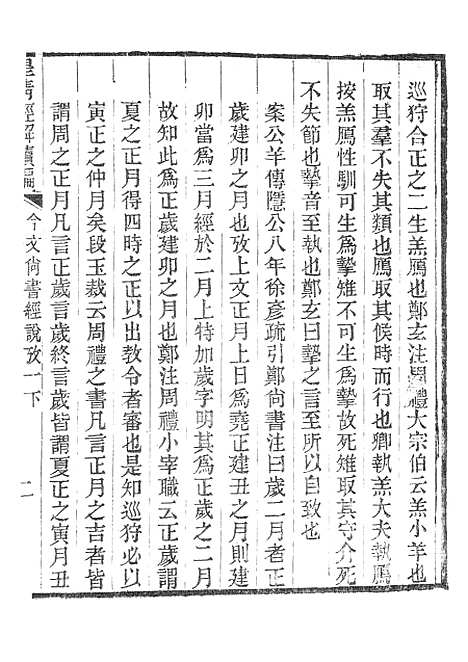 巡狩合正之二生羔鴈也鄭玄注周禮大宗伯云羔小羊也
取其羣不失其類也鴈取其候時而行也卿執羔大夫執鴈
按羔鴈性馴可生爲摯雉不可生爲摯故死雉取其守介死
不失節也摯音至執也鄭玄曰摯之言至所以自致也
案公羊傳隱公八年徐彥疏引鄭尙書注曰歲二月者正
歲建卯之月也攷上文正月上日爲堯正建丑之月則建
卯當爲三月經於二月上特加歲字明其爲正歲之二月
故知此爲正歲建卯之月也鄭注周禮小宰職云正歲謂
夏之正月得四時之正以出教令者審也是知巡狩必以
寅正之仲月矣段玉裁云周禮之書凡言正月之吉者皆
謂周之正月凡言正歲言歲終言歲皆謂夏正之寅月丑
皇淸經解續編
今文尙書經說攷一下
二